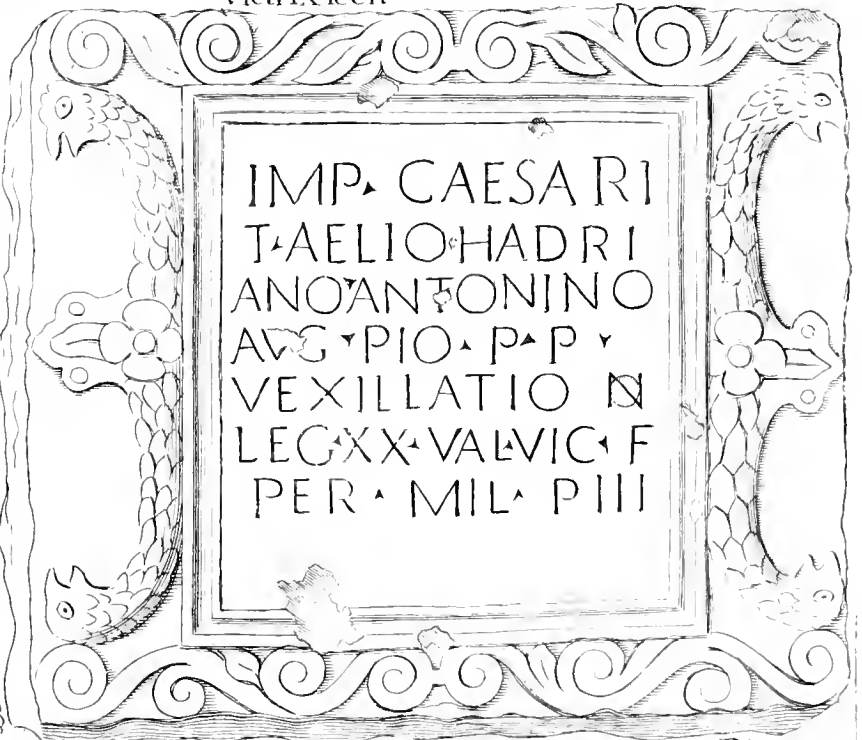 IMP. CAESARI
T. AELIO. HADRI
ANO. ANTONINO
AVG. PIO. P. P.
VEXILLATIO N
LEG. XX. VAL. VIC. F
PER. MIL. P III